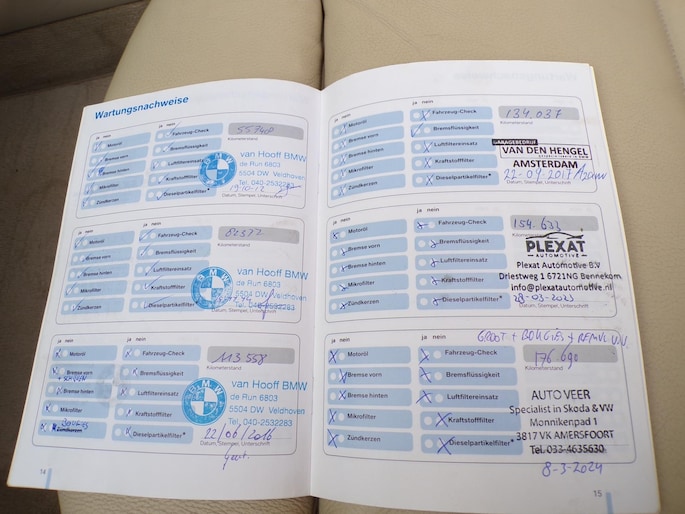 Wartungsnachweise
ja nein ja nein
Motoröl Fahrzeug-Check
Bremse vorn Bremsflüssigkeit
Bremse hinten Luftfiltereinsatz
Mikrofilter Kraftstofffilter
Zündkerzen Dieselpartikelfilter*
Kilometerstand
BMW
van Hooff BMW
de Run 6803
5504 DW Veldhoven
Tel. 040-2532283
19.10.12
Datum, Stempel, Unterschrift
ja nein ja nein
Motoröl Fahrzeug-Check
Bremse vorn Bremsflüssigkeit
Bremse hinten Luftfiltereinsatz
Mikrofilter Kraftstofffilter
Zündkerzen Dieselpartikelfilter*
84377
Kilometerstand
BMW
van Hooff BMW
de Run 6803
5504 DW Veldhoven
Tel. 040-2532283
Datum, Stempel, Unterschrift
ja nein ja nein
Motoröl Fahrzeug-Check
Bremse vorn Bremsflüssigkeit
Bremse hinten Luftfiltereinsatz
Mikrofilter Kraftstofffilter
BOUGIES
Zündkerzen Dieselpartikelfilter*
113 558
Kilometerstand
BMW
van Hooff BMW
de Run 6803
5504 DW Veldhoven
Tel. 040-2532283
22/06/2016
Datum, Stempel, Unterschrift
14
ja nein ja nein
Motoröl Fahrzeug-Check
Bremse vorn Bremsflüssigkeit
Bremse hinten Luftfiltereinsatz
Mikrofilter Kraftstofffilter
Zündkerzen Dieselpartikelfilter*
134.037
Kilometerstand
GARAGEBEDRIJF
VAN DEN HENGEL
AMSTERDAM
22-09-2017
Datum, Stempel, Unterschrift
ja nein ja nein
Motoröl Fahrzeug-Check
Bremse vorn Bremsflüssigkeit
Bremse hinten Luftfiltereinsatz
Mikrofilter Kraftstofffilter
Zündkerzen Dieselpartikelfilter*
154.633
PLEXAT
AUTOMOTIVE
Plexat Automotive B.V
Driestweg 1 6721NG Bennekom
info@plexatautomotive.nl
28-03-2023
Datum, Stempel, Unterschrift
GROOT + BOUGIES + REMVL. VV.
ja nein ja nein
Motoröl Fahrzeug-Check
Bremse vorn Bremsflüssigkeit
Bremse hinten Luftfiltereinsatz
Mikrofilter Kraftstofffilter
Zündkerzen Dieselpartikelfilter*
176 690
Kilometerstand
AUTO VEER
Specialist in Skoda & VW
Monnikenpad 1
3817 VK AMERSFOORT
Tel. 033-4635630
8-3-2024
15